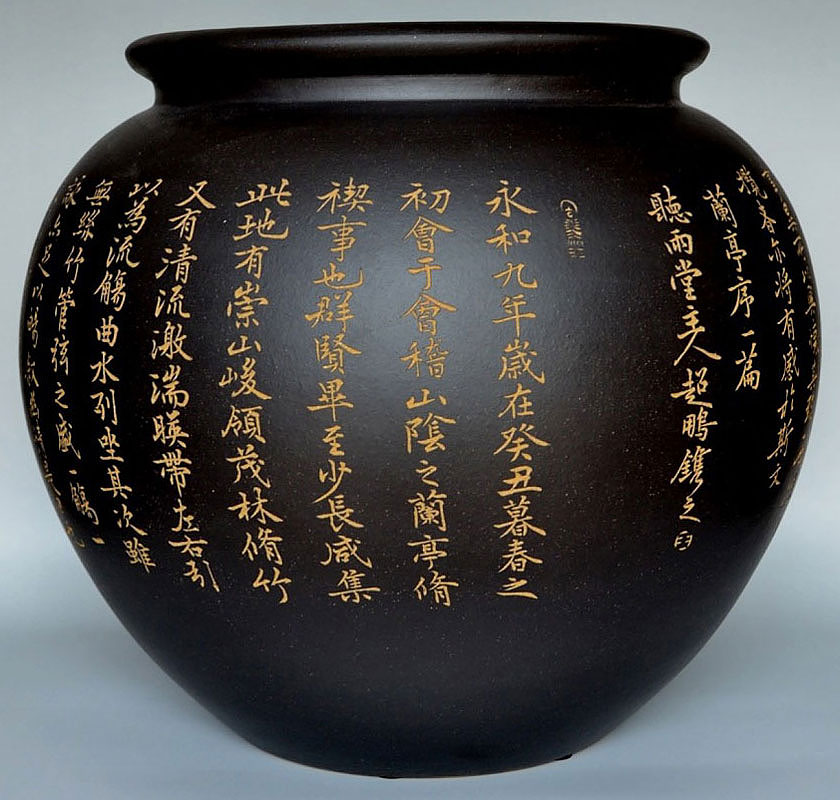 永和九年歲在癸丑暮春之
初會于會稽山陰之蘭亭脩
禊事也群賢畢至少長咸集
此地有崇山峻領茂林脩竹
又有清流激湍暎帶左右引
以為流觴曲水列坐其次雖
無絲竹管弦之盛一觴一
詠亦足以暢敘幽情
攬者亦將有感於斯文
蘭亭序一篇
聽雨堂主人超鵬鐫之